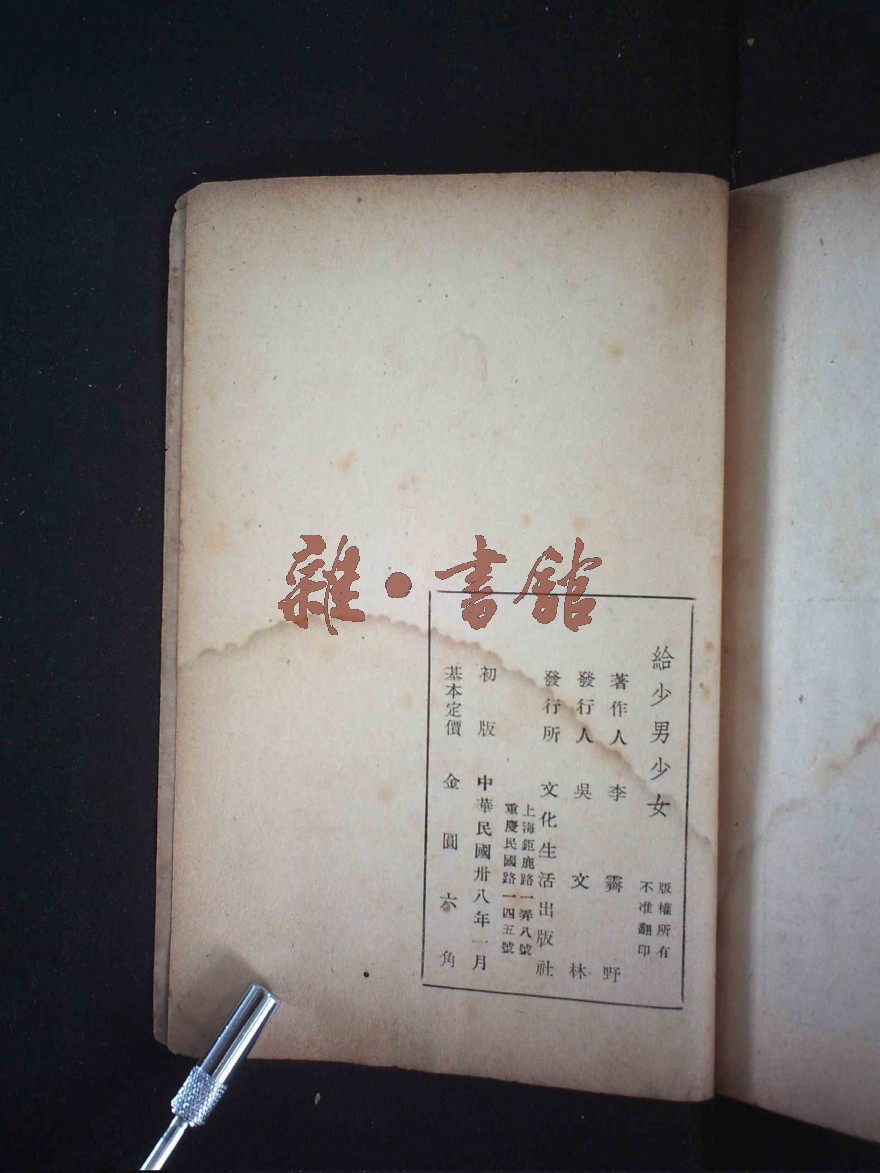 雜·書館
給少男少女
版權所有
不准翻印
著作人 李霽野
發行人 吳文林
發行所 文化生活出版社
上海鉅鹿路一弄八號
重慶民國路一四五號
初版 中華民國卅八年一月
基本定價 金圓六角